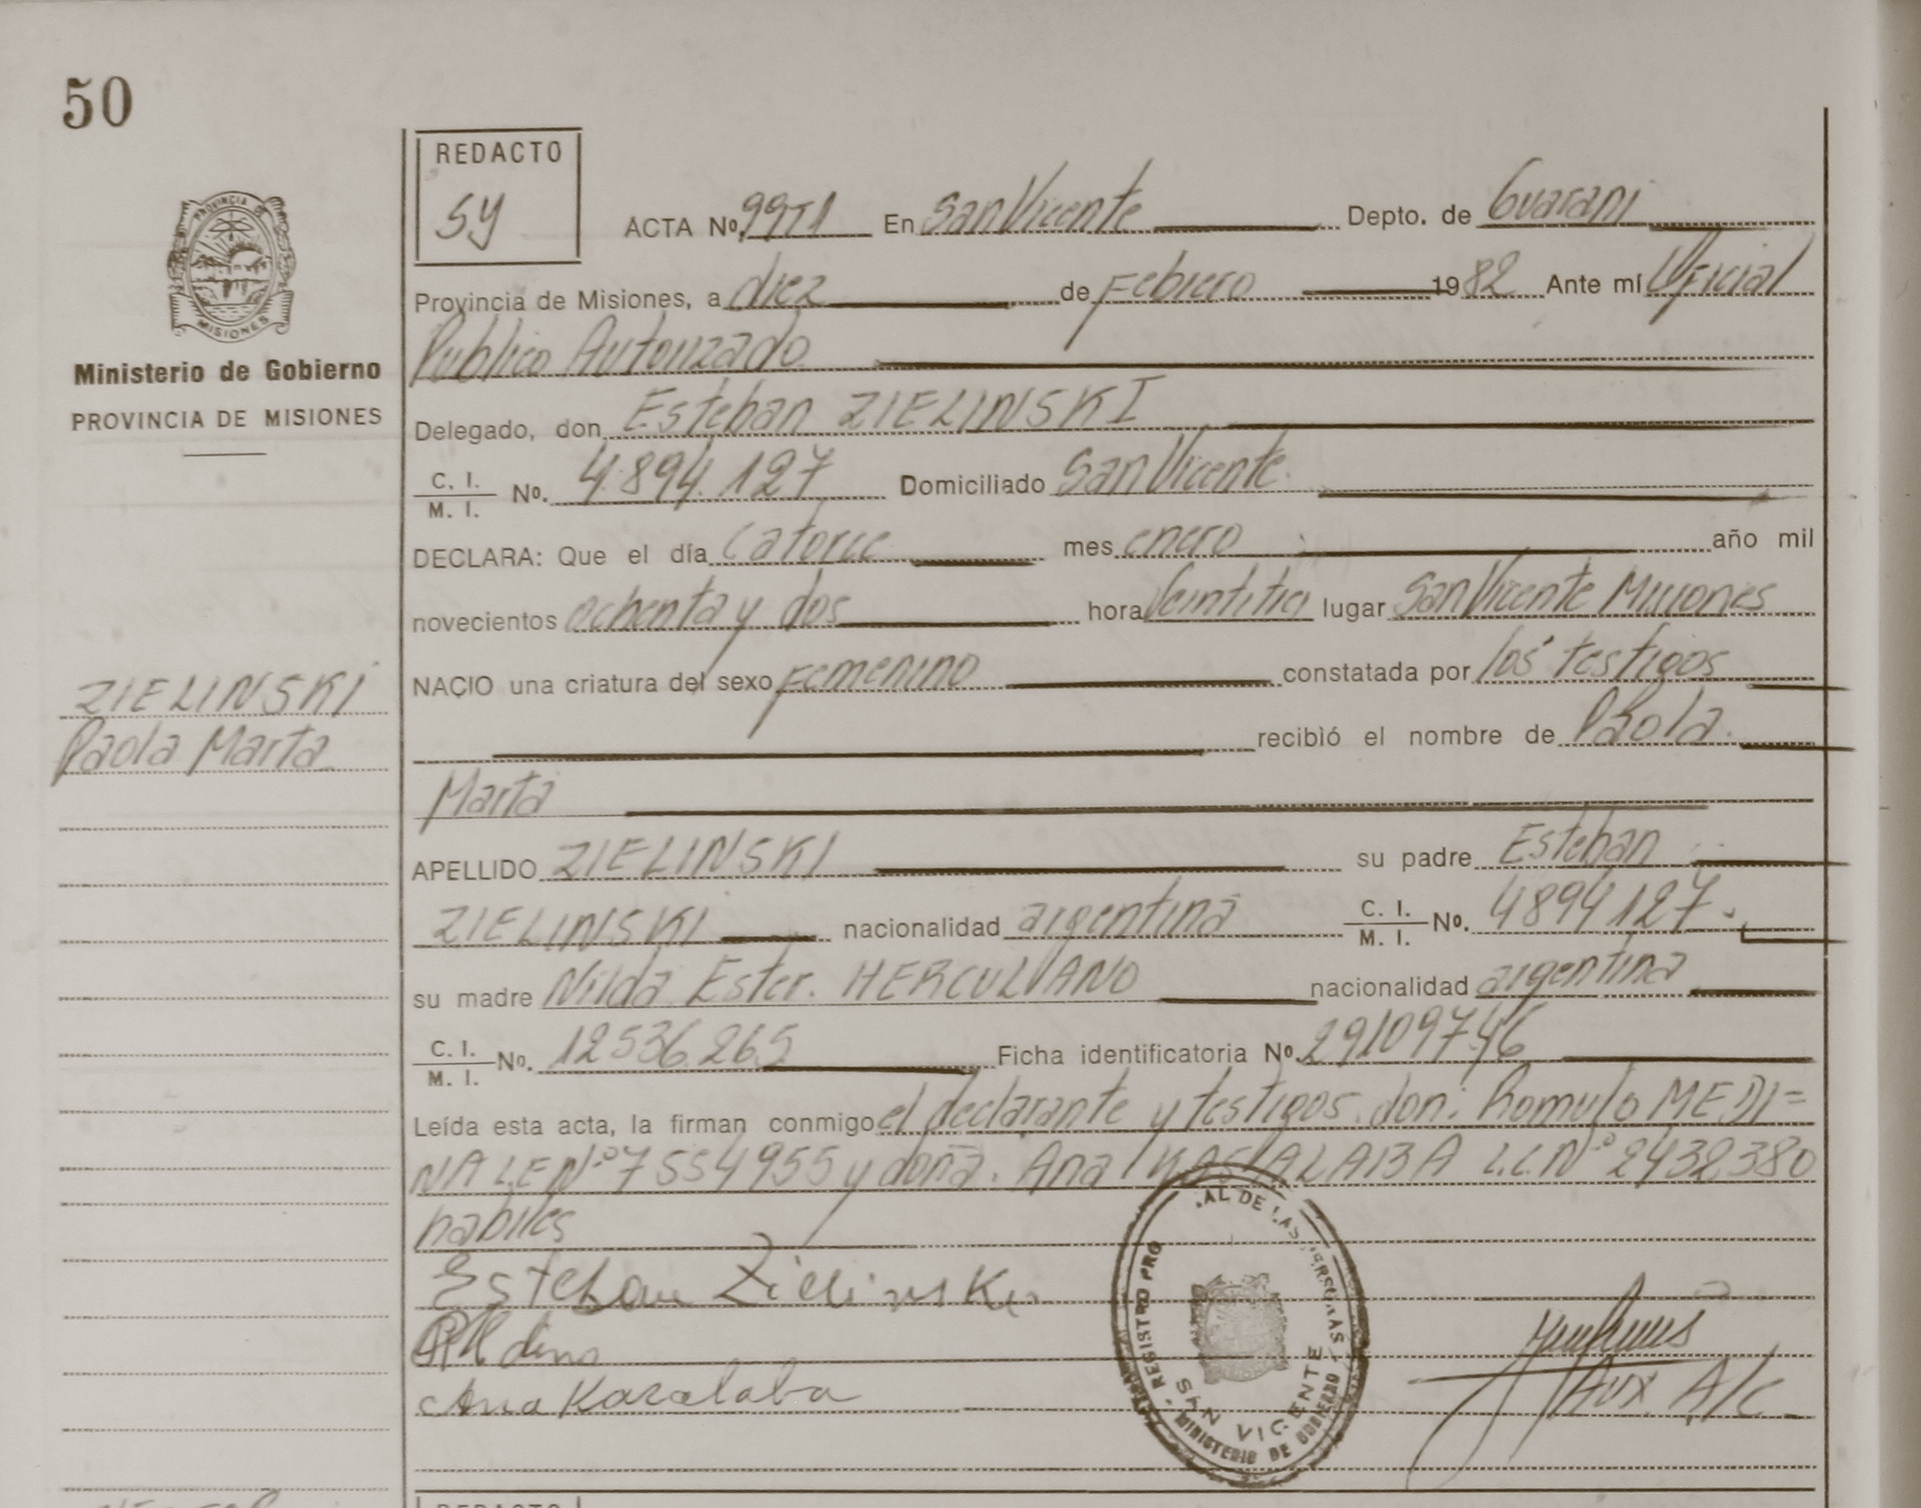 50
REDACTO
SY
PROVINCIA DE
MISIONES
Ministerio de Gobierno
PROVINCIA DE MISIONES
ACTA Nº En San Vicente Depto. de Guarani
Provincia de Misiones, a diez de Febrero 1982 Ante mí Oficial
Publico Autorizado
Delegado, don Esteban ZIELINSKI
C. I. / M. I. Nº. 4.894.127 Domiciliado San Vicente
DECLARA: Que el día Catorce mes enero año mil
novecientos ochenta y dos hora lugar San Vicente Misiones
NACIO una criatura del sexo Femenino constatada por los testigos
recibió el nombre de Paola
Marta
ZIELINSKI
Paola Marta
APELLIDO ZIELINSKI su padre Esteban
ZIELINSKI nacionalidad argentina C. I. / M. I. Nº. 4894127
su madre Nilda Ester. HERCULIANO nacionalidad argentina
C. I. / M. I. Nº. 12536265 Ficha identificatoria Nº 29109746
Leída esta acta, la firman conmigo el declarante y testigos don: Romulo MEDI=
NA L.E Nº 7554955 y doña. Ana L.C. Nº 2432380
habiles
Esteban Zielinski
Ana Kazalaba
Aux A/c.
REGISTRO PRO AL DE LAS PERSONAS
SAN VICENTE
MINISTERIO DE GOBIERNO
REDACTO